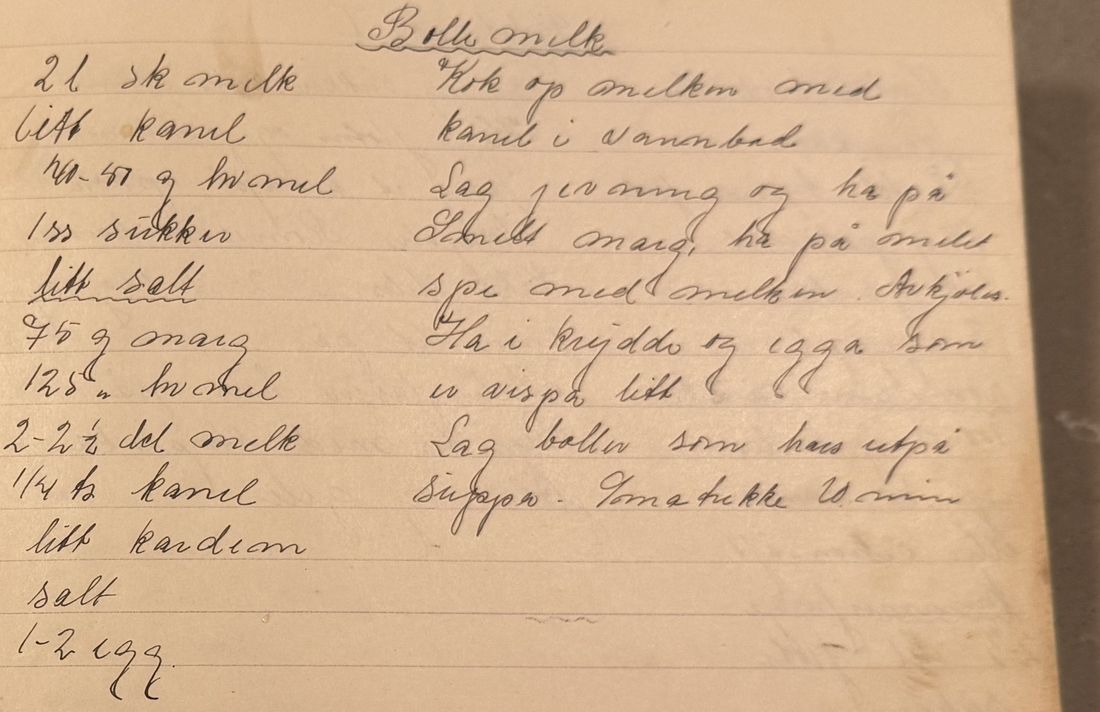 Bolle melk
2 l sk melk
litt kanel
40-50 g hv mel
1 ss sukker
litt salt
75 g marg
125 " hv mel
2-2½ del melk
1/4 ts kanel
litt kardem
salt
1-2 egg.
Kok op melken med
kanel i vannbad
Lag jevning og ha på
Smelt marg, ha på melet
spe med melken. Avkjøles.
Ha i krydde og egga som
er vispa litt
Lag boller som haes utpå
suppa. Småtrekke 10 min